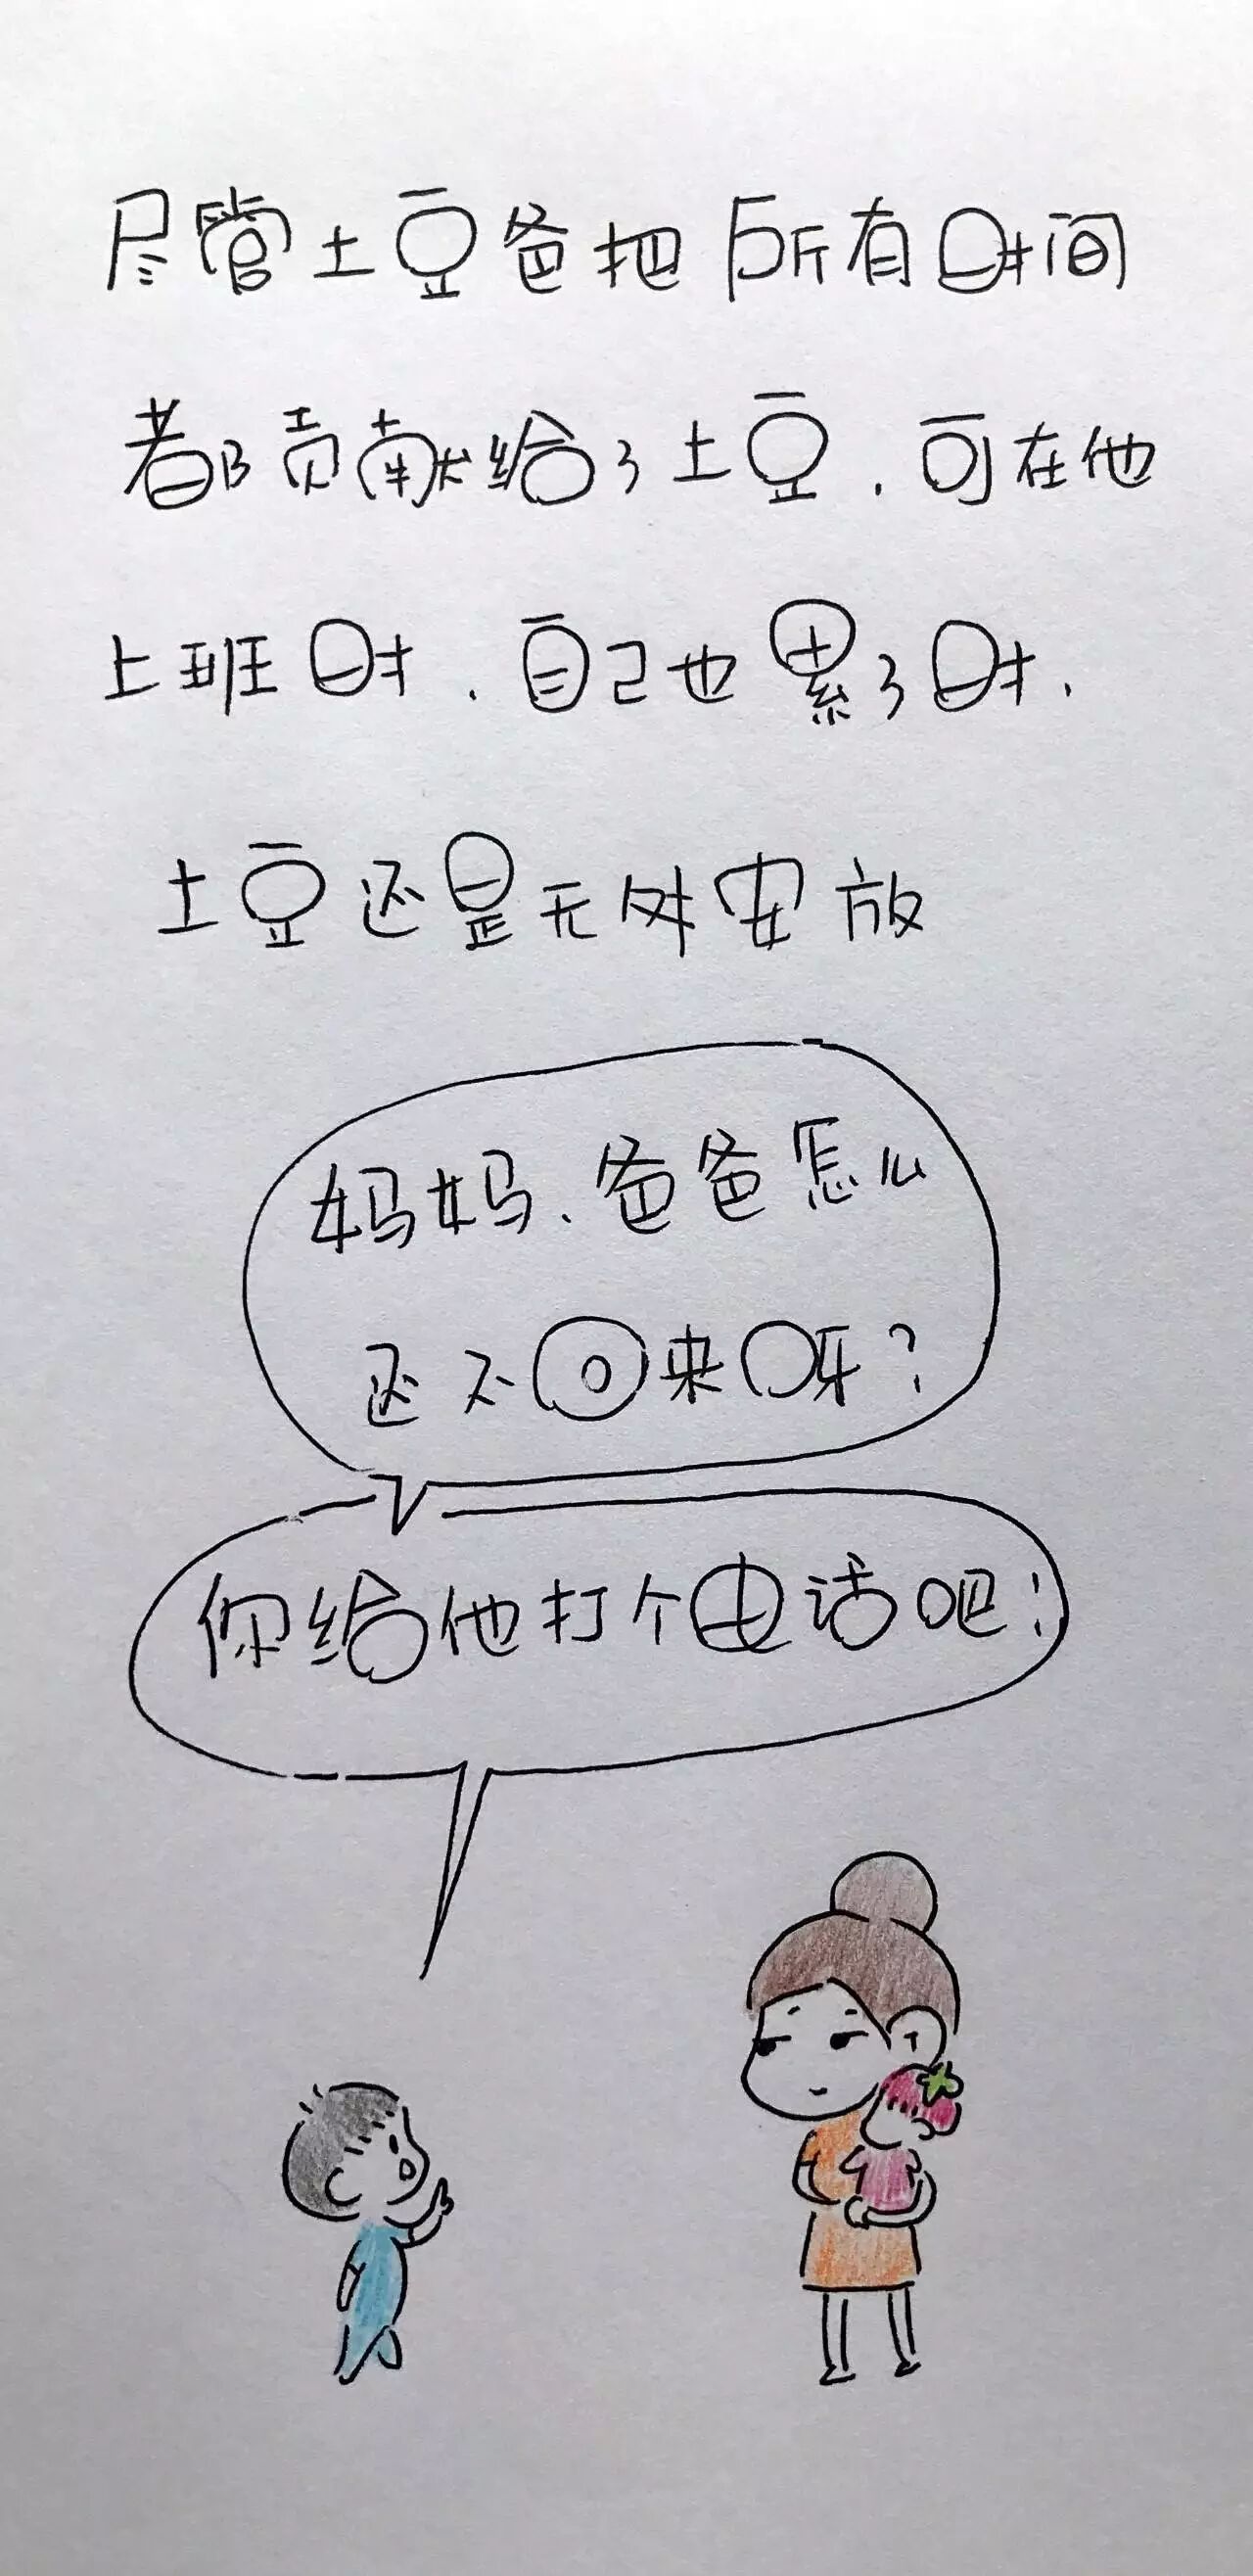 尽管土豆爸把所有时间
都贡献给了土豆，可在他
上班时，自己也累了时，
土豆还是无处安放
妈妈、爸爸怎么
还不回来呀？
你给他打个电话吧！